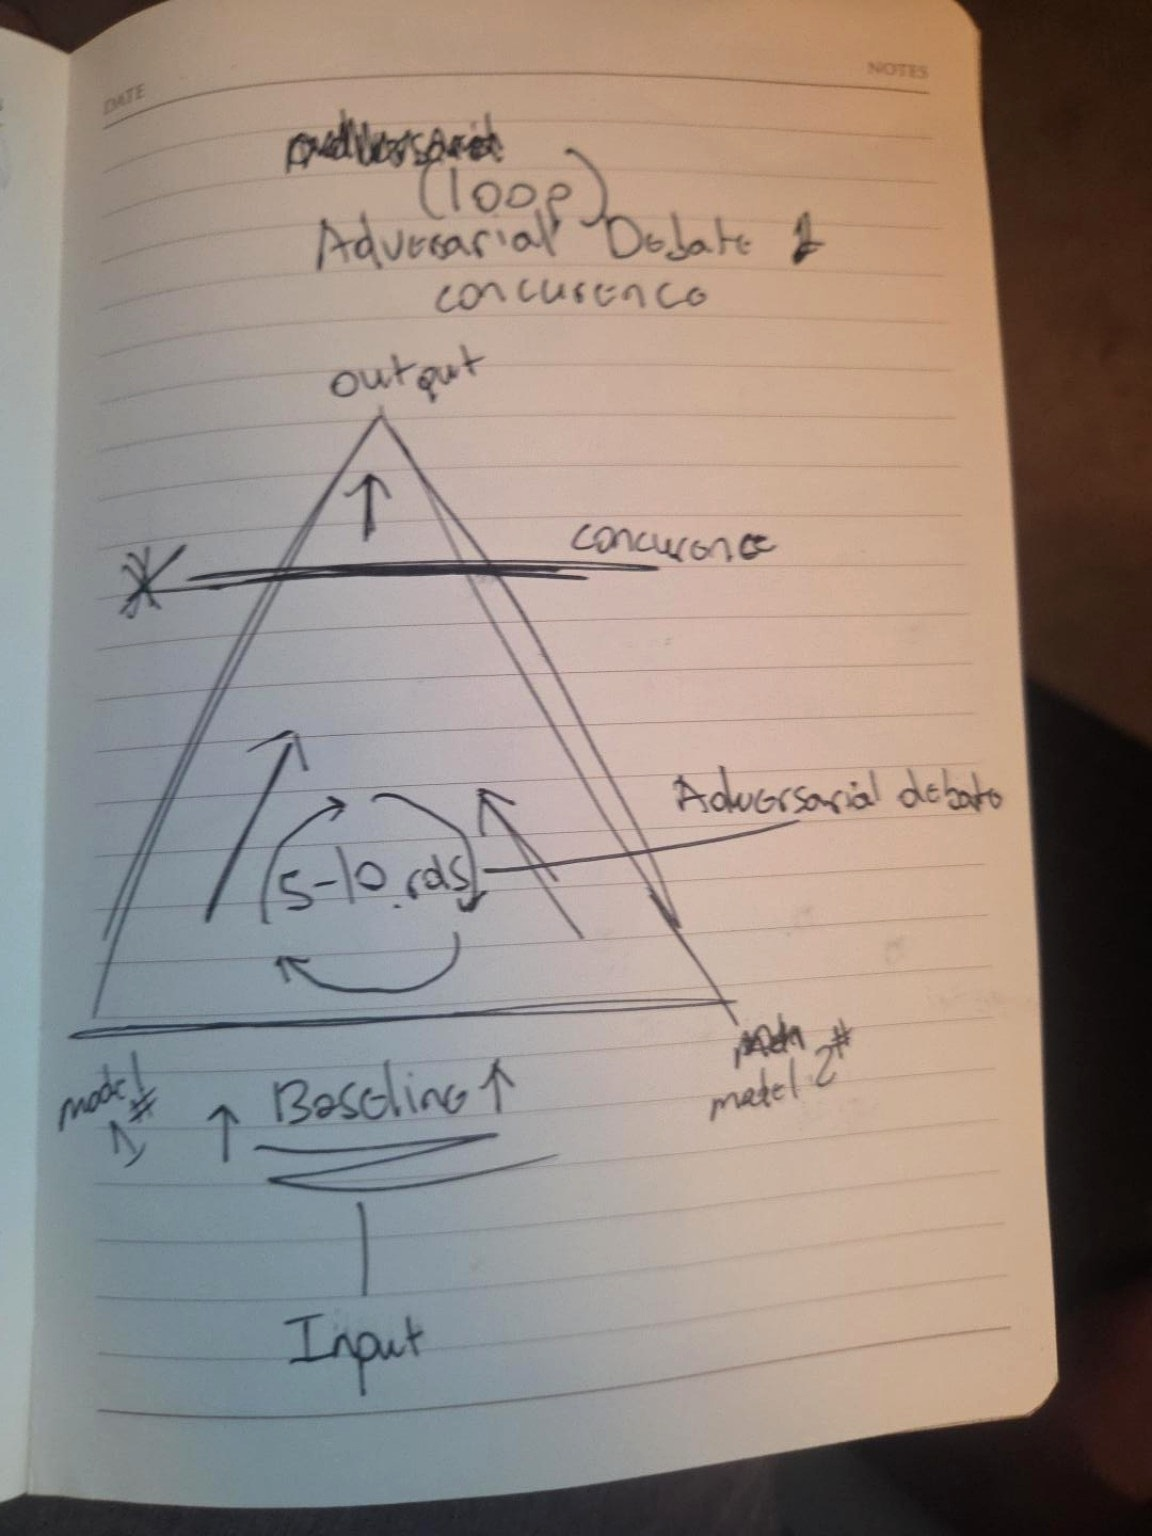 DATE
NOTES
(loop)
Adversarial Debate &
concurence
output
concurence
Adversarial debate
5-10 rds
model 1#
model 2#
Baseline
Input